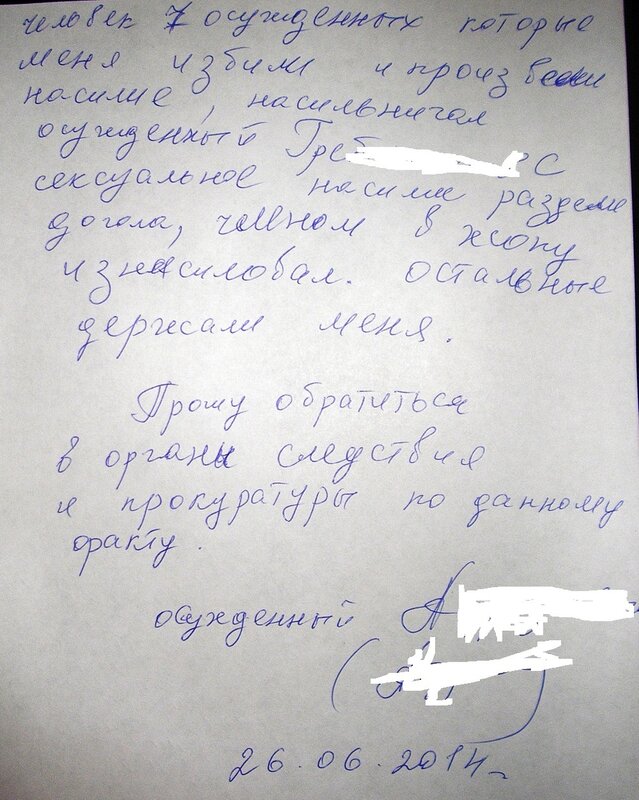 человек 7 осужденных которые
меня избили и произвели
насилие, насильничал
осужденный Греб С
сексуальное насилие раздели
догола, членом в жопу
изнасиловал. остальные
держали меня.
Прошу обратиться
в органы следствия
и прокуратуры по данному
факту.
осужденный А
(
26.06.2014г